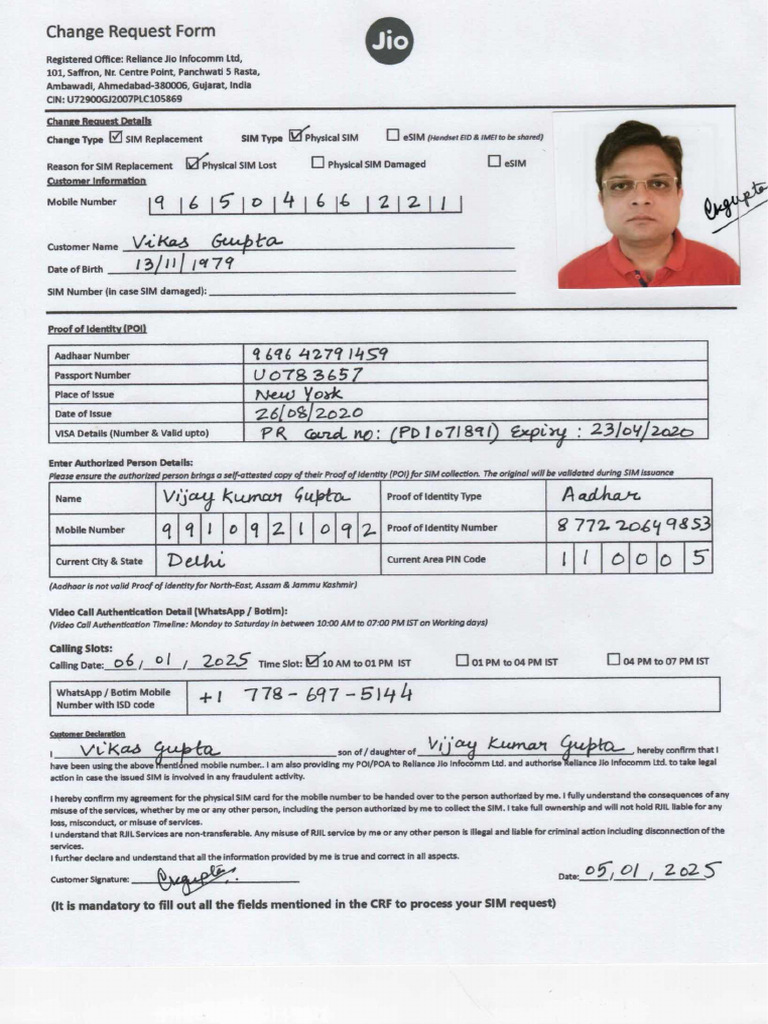 Change Request Form
Jio
Registered Office: Reliance Jio Infocomm Ltd,
101, Saffron, Nr. Centre Point, Panchwati 5 Rasta,
Ambawadi, Ahmedabad-380006, Gujarat, India
CIN: U72900GJ2007PLC105869
Change Request Details
Change Type SIM Replacement SIM Type Physical SIM eSIM (Handset EID & IMEI to be shared)
Reason for SIM Replacement Physical SIM Lost Physical SIM Damaged eSIM
Customer Information
Mobile Number 9 6 5 0 4 6 6 2 2 1
Customer Name Vikas Gupta
Date of Birth 13/11/1979
SIM Number (in case SIM damaged):
Proof of Identity (POI)
Aadhaar Number 9696 42791459
Passport Number U0783657
Place of Issue New York
Date of Issue 26/08/2020
VISA Details (Number & Valid upto) PR Card no: (PD1071891) Expiry : 23/04/2020
Enter Authorized Person Details:
Please ensure the authorized person brings a self-attested copy of their Proof of Identity (POI) for SIM collection. The original will be validated during SIM issuance
Name Vijay Kumar Gupta Proof of Identity Type Aadhar
Mobile Number 9 9 1 0 9 2 1 0 9 2 Proof of Identity Number 8772 2064 9853
Current City & State Delhi Current Area PIN Code 1 1 0 0 0 5
(Aadhaar is not valid Proof of Identity for North-East, Assam & Jammu Kashmir)
Video Call Authentication Detail (WhatsApp / Botim):
(Video Call Authentication Timeline: Monday to Saturday in between 10:00 AM to 07:00 PM IST on Working days)
Calling Slots:
Calling Date: 06/ 01 / 2025 Time Slot: 10 AM to 01 PM IST 01 PM to 04 PM IST 04 PM to 07 PM IST
WhatsApp / Botim Mobile
Number with ISD code +1 778-697-5144
Customer Declaration
I Vikas Gupta son of / daughter of Vijay Kumar Gupta , hereby confirm that I
have been using the above mentioned mobile number.. I am also providing my POI/POA to Reliance Jio Infocomm Ltd. and authorise Reliance Jio Infocomm Ltd. to take legal
action in case the issued SIM is involved in any fraudulent activity.
I hereby confirm my agreement for the physical SIM card for the mobile number to be handed over to the person authorized by me. I fully understand the consequences of any
misuse of the services, whether by me or any other person, including the person authorized by me to collect the SIM. I take full ownership and will not hold RJIL liable for any
loss, misconduct, or misuse of services.
I understand that RJIL Services are non-transferable. Any misuse of RJIL service by me or any other person is illegal and liable for criminal action including disconnection of the
services.
I further declare and understand that all the information provided by me is true and correct in all aspects.
Customer Signature: Date: 05/ 01 / 2025
(It is mandatory to fill out all the fields mentioned in the CRF to process your SIM request)